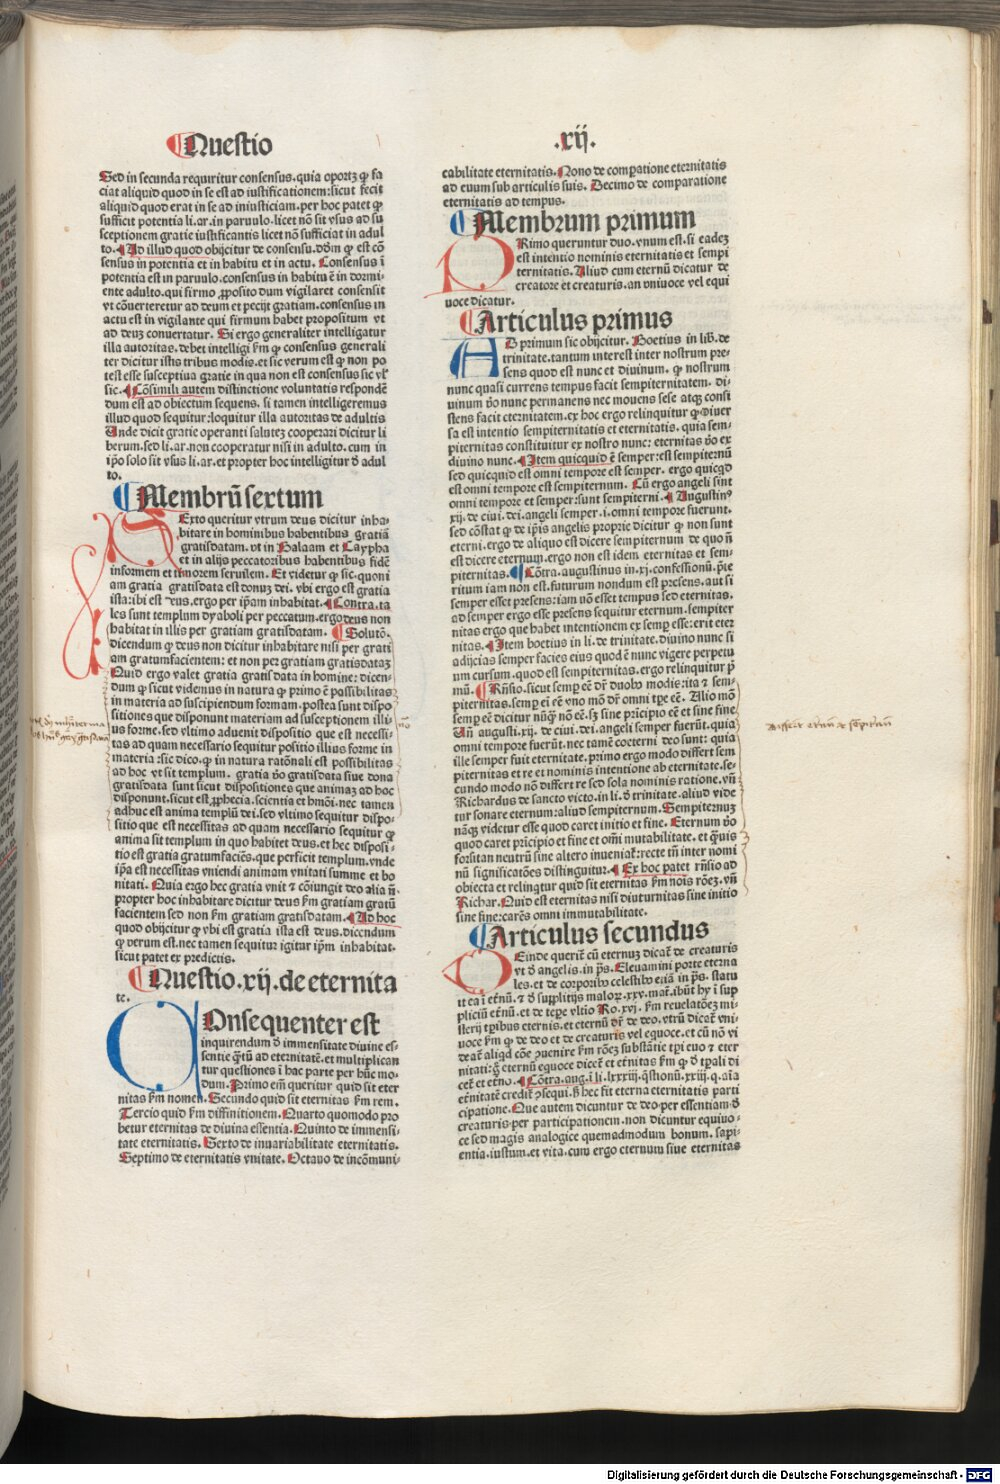 Questio
.xij.
Sed in secunda requiritur consensus. quia oportꝫ ꝙ fa
ciat aliquid quod in se est ad iustificationem: sicut fecit
aliquid quod erat in se ad iniusticiam. per hoc patet ꝙ
sufficit potentia li. ar. in paruulo. licet nō sit vsus ad su
sceptionem gratie iustificantis licet nō sufficiat in adul
to. Ad illud quod obijcitur de consensu. dōm ꝙ est cō
sensus in potentia et in habitu et in actu. Consensus ī
potentia est in paruulo. consensus in habitu ē in dormi-
ente adulto. qui firmo proposito dum vigilaret consensit
vt cōuerteretur ad deum et pecijt gratiam. consensus in
actu est in vigilante qui firmum habet propositum vt
ad deuꝫ conuertatur. Si ergo generaliter intelligatur
illa autoritas. debet intelligi ẜm ꝙ consensus generali
ter dicitur istis tribus modis. et sic verum est ꝙ non po
test esse susceptiua gratie in qua non est consensus sic vl'
sic. Cōsimili autem distinctione voluntatis respondē
dum est ad obiectum sequens. si tamen intelligeremus
illud quod sequitur: loquitur illa autoritas de adultis
Unde dicit gratie operanti saluteꝫ cooperari dicitur li
berum. sed li. ar. non cooperatur nisi in adulto. cum in
ip̄o solo sit vsus li. ar. et propter hoc intelligitur ð adul
to.
Membrū sextum
SExto queritur vtrum deus dicitur inha-
bitare in hominibus habentibus gratiā
gratisdatam. vt in Balaam et Caypha
et in alijs peccatoribus habentibus fidē
informem et timorem seruilem. Et videtur ꝙ sic. quoni
am gratia gratisdata est donuꝫ dei. vbi ergo est gratia
ista: ibi est deus. ergo per ip̄am inhabitat. Contra. ta
les sunt templum dyaboli per peccatum. ergo deus non
habitat in illis per gratiam gratisdatam. Solutō.
dicendum ꝙ deus non dicitur inhabitare nisi per grati
am gratumfacientem: et non per gratiam gratisdataꝫ
Quid ergo valet gratia gratisdata in homine: dicen-
dum ꝙ sicut videmus in natura ꝙ primo ē passibilitas
in materia ad suscipiendum formam. postea sunt dispo
sitiones que disponunt materiam ad susceptionem illi
us forme. sed vltimo aduenit dispositio que est necessi-
tas ad quam necessario sequitur positio illius forme in
materia: sic dico. ꝙ in natura ratōnali est possibilitas
ad hoc vt sit templum. gratia v̄o gratisdata siue dona
gratisdata sunt sicut dispositiones que animaꝫ ad hoc
disponunt. sicut est prophecia. scientia et hmōi. nec tamen
adhuc est anima templū dei. sed vltimo sequitur dispo-
sitio que est necessitas ad quam necessario sequitur ꝙ
anima sit templum in quo habitet deus. et hec disposi-
tio est gratia gratumfaciēs. que perficit templum. vnde
ip̄a est necessitas vniendi animam vnitati summe et bo
nitati. Quia ergo hec gratia vnit et cōiungit deo alia n̄.
propter hoc inhabitare dicitur deus ẜm gratiam gratū
facientem sed non ẜm gratiam gratisdatam. Ad hoc
quod obijcitur ꝙ vbi est gratia ista est deus. dicendum
ꝙ verum est. nec tamen sequitur igitur ip̄m inhabitat.
sicut patet ex predictis.
Questio .xij. de eternita
te.
COnsequenter est
inquirendum ð immensitate diuine es-
sentie quātū ad eternitatē. et multiplican
tur questiones ī hac parte per hūc mo-
dum. Primo eīm queritur quid sit eter
nitas ẜm nomen. Secundo quid sit eternitas ẜm rem.
Tercio quid ẜm diffinitionem. Quarto quomodo pro
betur eternitas de diuina essentia. Quinto de immensi-
tate eternitatis. Sexto de inuariabilitate eternitatis.
Septimo de eternitatis vnitate. Octauo de incōmuni-
cabilitate eternitatis. Nono de comparatione eternitatis
ad euum sub articulis suis. Decimo de comparatione
eternitatis ad tempus.
Membrum primum
PRimo queruntur duo. vnum est. si eadeꝫ
est intentio nominis eternitatis et sempi
ternitatis. Aliud cum eternū dicatur de
creatore et creaturis. an vniuoce vel equi
uoce dicatur.
Articulus primus
AD primum sic obijcitur. Boetius in lib. de
trinitate. tantum interest inter nostrum pre-
sens quod est nunc et diuinum. ꝙ nostrum
nunc quasi currens tempus facit sempiternitatem. di-
uinum v̄o nunc permanens nec mouens sese atqꝫ consi
stens facit eternitatem. ex hoc ergo relinquitur ꝙ diuer
sa est intentio sempiternitatis et eternitatis. quia sem-
piternitas constituitur ex nostro nunc: eternitas v̄o ex
diuino nunc. Item quicquid ē semper: est sempiternū
sed quicquid est omni tempore est semper. ergo quicqd
est omni tempore est sempiternum. Cū ergo angeli sint
omni tempore et semper: sunt sempiterni. Augustinꝰ
xij. de ciui. dei. angeli semper. i. omni tempore fuerunt.
sed cōstat ꝙ de ip̄is angelis proprie dicitur ꝙ non sunt
eterni. ergo de aliquo est dicere sempiternum de quo n̄
est dicere eternum. ergo non est idem eternitas et sem-
piternitas. Cōtra. augustinus in .xj. confessionū. p̄te
ritum iam non est. futurum nondum est presens. aut si
semper esset presens: iam vō n̄ esset tempus sed eternitas.
ad semper ergo esse presens sequitur eternum. sempiter
nitas ergo que habet intentionem ex semp esse: erit eter
nitas. Item boetius in li. de trinitate. diuino nunc si
adijcias semper facies eius quod ē nunc vigere perpetu
um cursum. quod est sempiternitas. ergo relinquitur p̄
mū. Rn̄sio. sicut semp eē dr̄ duobꝰ modis: ita et sem-
piternitas. semp eī eē vno mō dr̄ omni tpe eē. Alio mō
semp eē dicitur nūqꝫ nō eē. sꝫ sine pricipio eē et sine fine
Un̄ augusti. xij. de ciui. dei. angeli semper fuerūt. quia
omni tempore fuerūt. nec tamē coeterni deo sunt: quia
ille semper fuit eternitate. primo ergo modo differt sem
piternitas et re et nominis intentione ab eternitate. se-
cundo modo nō differt re sed sola nominis ratione. vn̄
Richardus de sancto victo. in li. ð trinitate. aliud vide
tur sonare eternum: aliud sempiternum. Sempiternuꝫ
nāqꝫ videtur esse quod caret initio et fine. Eternum v̄o
quod caret pricipio et fine et omī mutabilitate. et quis
forsitan neutrū sine altero inueniat: recte tn̄ inter nomi
nū significatōes distinguitur. Ex hoc patet rn̄sio ad
obiecta et relinqtur quid sit eternitas ẜm nois rōeꝫ. vn̄
Richar. Quid est eternitas nisi diuturnitas sine initio
sine fine: carēs omni immutabilitate.
Articulus secundus
DEinde querit cū eternuꝫ dicat de creaturis
vt ð angelis. in ps. Eleuamini porte eterna
les. et de corporibꝰ celestibꝰ etiā in ps. statu
it ea ī etnū. et ð supplitijs maloꝝ. xxv. mat. ibūt hy ī sup
pliciū etnū. et de tpe vltio Ro. xvj. ẜm reuelatōeꝫ mi-
sterij tpibus eternis. et eternū dr̄ de deo. vtrū dicat vni-
uoce ẜm ꝙ de deo et de creaturis vel equoce. et cū nō vi
deat aliqd cōe ꝯuenire ẜm rōeꝫ substātie tpi euo et eter
nitati: eternū equoce dicet et etnitas ẜm ꝙ ð tpali di
cet et etno. Cōtra. aug. ī li. lxxxiij. qstionū. xxiij. q. aīa
eēnitatē credit ꝯsequi. sꝫ hec fit eterna eternitatis parti
cipatione. Que autem dicuntur de deo per essentiam ð
creaturis per participationem. non dicuntur equiuo-
ce sed magis analogice quemadmodum bonum. sapi-
entia. iustum. et vita. cum ergo eternum siue eternitas
Digitalisierung gefördert durch die Deutsche Forschungsgemeinschaft - DFG